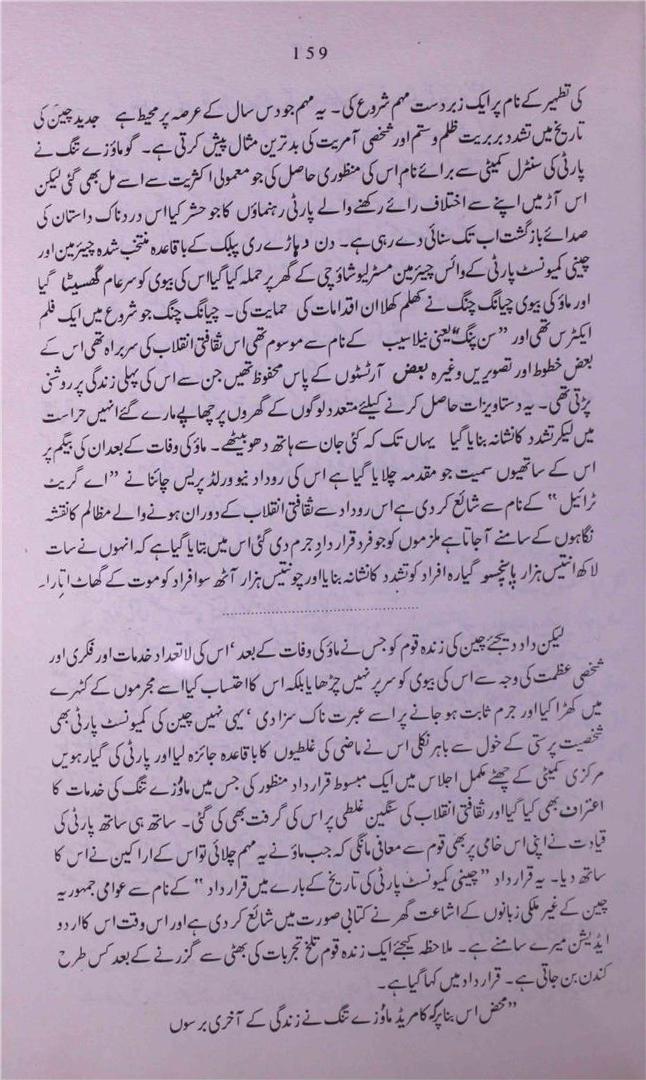 159
کی تطہیر کے نام پر ایک زبردست مہم شروع کی۔ یہ مہم جو دس سال کے عرصہ پر محیط ہے جدید چین کی
تاریخ میں تشدد بربریت ظلم و ستم اور شخصی آمریت کی بدترین مثال پیش کرتی ہے۔ گو ماؤزے تنگ نے
پارٹی کی سنٹرل کمیٹی سے برائے نام اس کی منظوری حاصل کی جو معمولی اکثریت سے اسے مل بھی گئی لیکن
اس آڑ میں اپنے سے اختلاف رائے رکھنے والے پارٹی رہنماؤں کا جو حشر کیا اس دردناک داستان کی
صدائے بازگشت اب تک سنائی دے رہی ہے۔ دن دہاڑے ری پبلک کے باقاعدہ منتخب شدہ چیئرمین اور
چینی کمیونسٹ پارٹی کے وائس چیئرمین مسٹر لیوشاؤچی کے گھر پر حملہ کیا گیا اس کی بیوی کو سرعام گھسیٹا گیا
اور ماؤ کی بیوی چیانگ چنگ نے کھلم کھلا ان اقدامات کی حمایت کی۔ چیانگ چنگ جو شروع میں ایک فلم
ایکٹرس تھی اور ”سن پنگ“ یعنی نیلا سیب کے نام سے موسوم تھی اس ثقافتی انقلاب کی سربراہ تھی اس کے
بعض خطوط اور تصویریں وغیرہ بعض آرٹسٹوں کے پاس محفوظ تھیں جن سے اس کی پہلی زندگی پر روشنی
پڑتی تھی۔ یہ دستاویزات حاصل کرنے کیلئے متعدد لوگوں کے گھروں پر چھاپے مارے گئے انہیں حراست
میں لیکر تشدد کا نشانہ بنایا گیا یہاں تک کہ کئی جان سے ہاتھ دھو بیٹھے۔ ماؤ کی وفات کے بعد ان کی بیگم پر
اس کے ساتھیوں سمیت جو مقدمہ چلایا گیا ہے اس کی روداد نیو ورلڈ پریس چائنا نے ”اے گریٹ
ٹرائیل“ کے نام سے شائع کر دی ہے اس روداد سے ثقافتی انقلاب کے دوران ہونے والے مظالم کا نقشہ
نگاہوں کے سامنے آ جاتا ہے ملزموں کو جو فرد قرارداد جرم دی گئی اس میں بتایا گیا ہے کہ انہوں نے سات
لاکھ انتیس ہزار پانچسو گیارہ افراد کو تشدد کا نشانہ بنایا اور چونتیس ہزار آٹھ سو افراد کو موت کے گھاٹ اتارا۔
لیکن داد دیجئے چین کی زندہ قوم کو جس نے ماؤ کی وفات کے بعد ‘ اس کی لاتعداد خدمات اور فکری اور
شخصی عظمت کی وجہ سے اس کی بیوی کو سر پر نہیں چڑھایا بلکہ اس کا احتساب کیا اسے مجرموں کے کٹہرے
میں کھڑا کیا اور جرم ثابت ہو جانے پر اسے عبرت ناک سزا دی ‘ یہی نہیں چین کی کمیونسٹ پارٹی بھی
شخصیت پرستی کے خول سے باہر نکلی اس نے ماضی کی غلطیوں کا باقاعدہ جائزہ لیا اور پارٹی کی گیارہویں
مرکزی کمیٹی کے چھٹے مکمل اجلاس میں ایک مبسوط قرارداد منظور کی جس میں ماؤزے تنگ کی خدمات کا
اعتراف بھی کیا گیا اور ثقافتی انقلاب کی سنگین غلطی پر اس کی گرفت بھی کی گئی۔ ساتھ ہی ساتھ پارٹی کی
قیادت نے اپنی اس خامی پر بھی قوم سے معافی مانگی کہ جب ماؤ نے یہ مہم چلائی تو اس کے اراکین نے اس کا
ساتھ دیا۔ یہ قرارداد ”چینی کمیونسٹ پارٹی کی تاریخ کے بارے میں قرارداد“ کے نام سے عوامی جمہوریہ
چین کے غیر ملکی زبانوں کے اشاعت گھر نے کتابی صورت میں شائع کر دی ہے اور اس وقت اس کا اردو
ایڈیشن میرے سامنے ہے۔ ملاحظہ کیجئے ایک زندہ قوم تلخ تجربات کی بھٹی سے گزرنے کے بعد کس طرح
کندن بن جاتی ہے۔ قرارداد میں کہا گیا ہے۔
”محض اس بنا پر کہ کامریڈ ماؤزے تنگ نے زندگی کے آخری برسوں